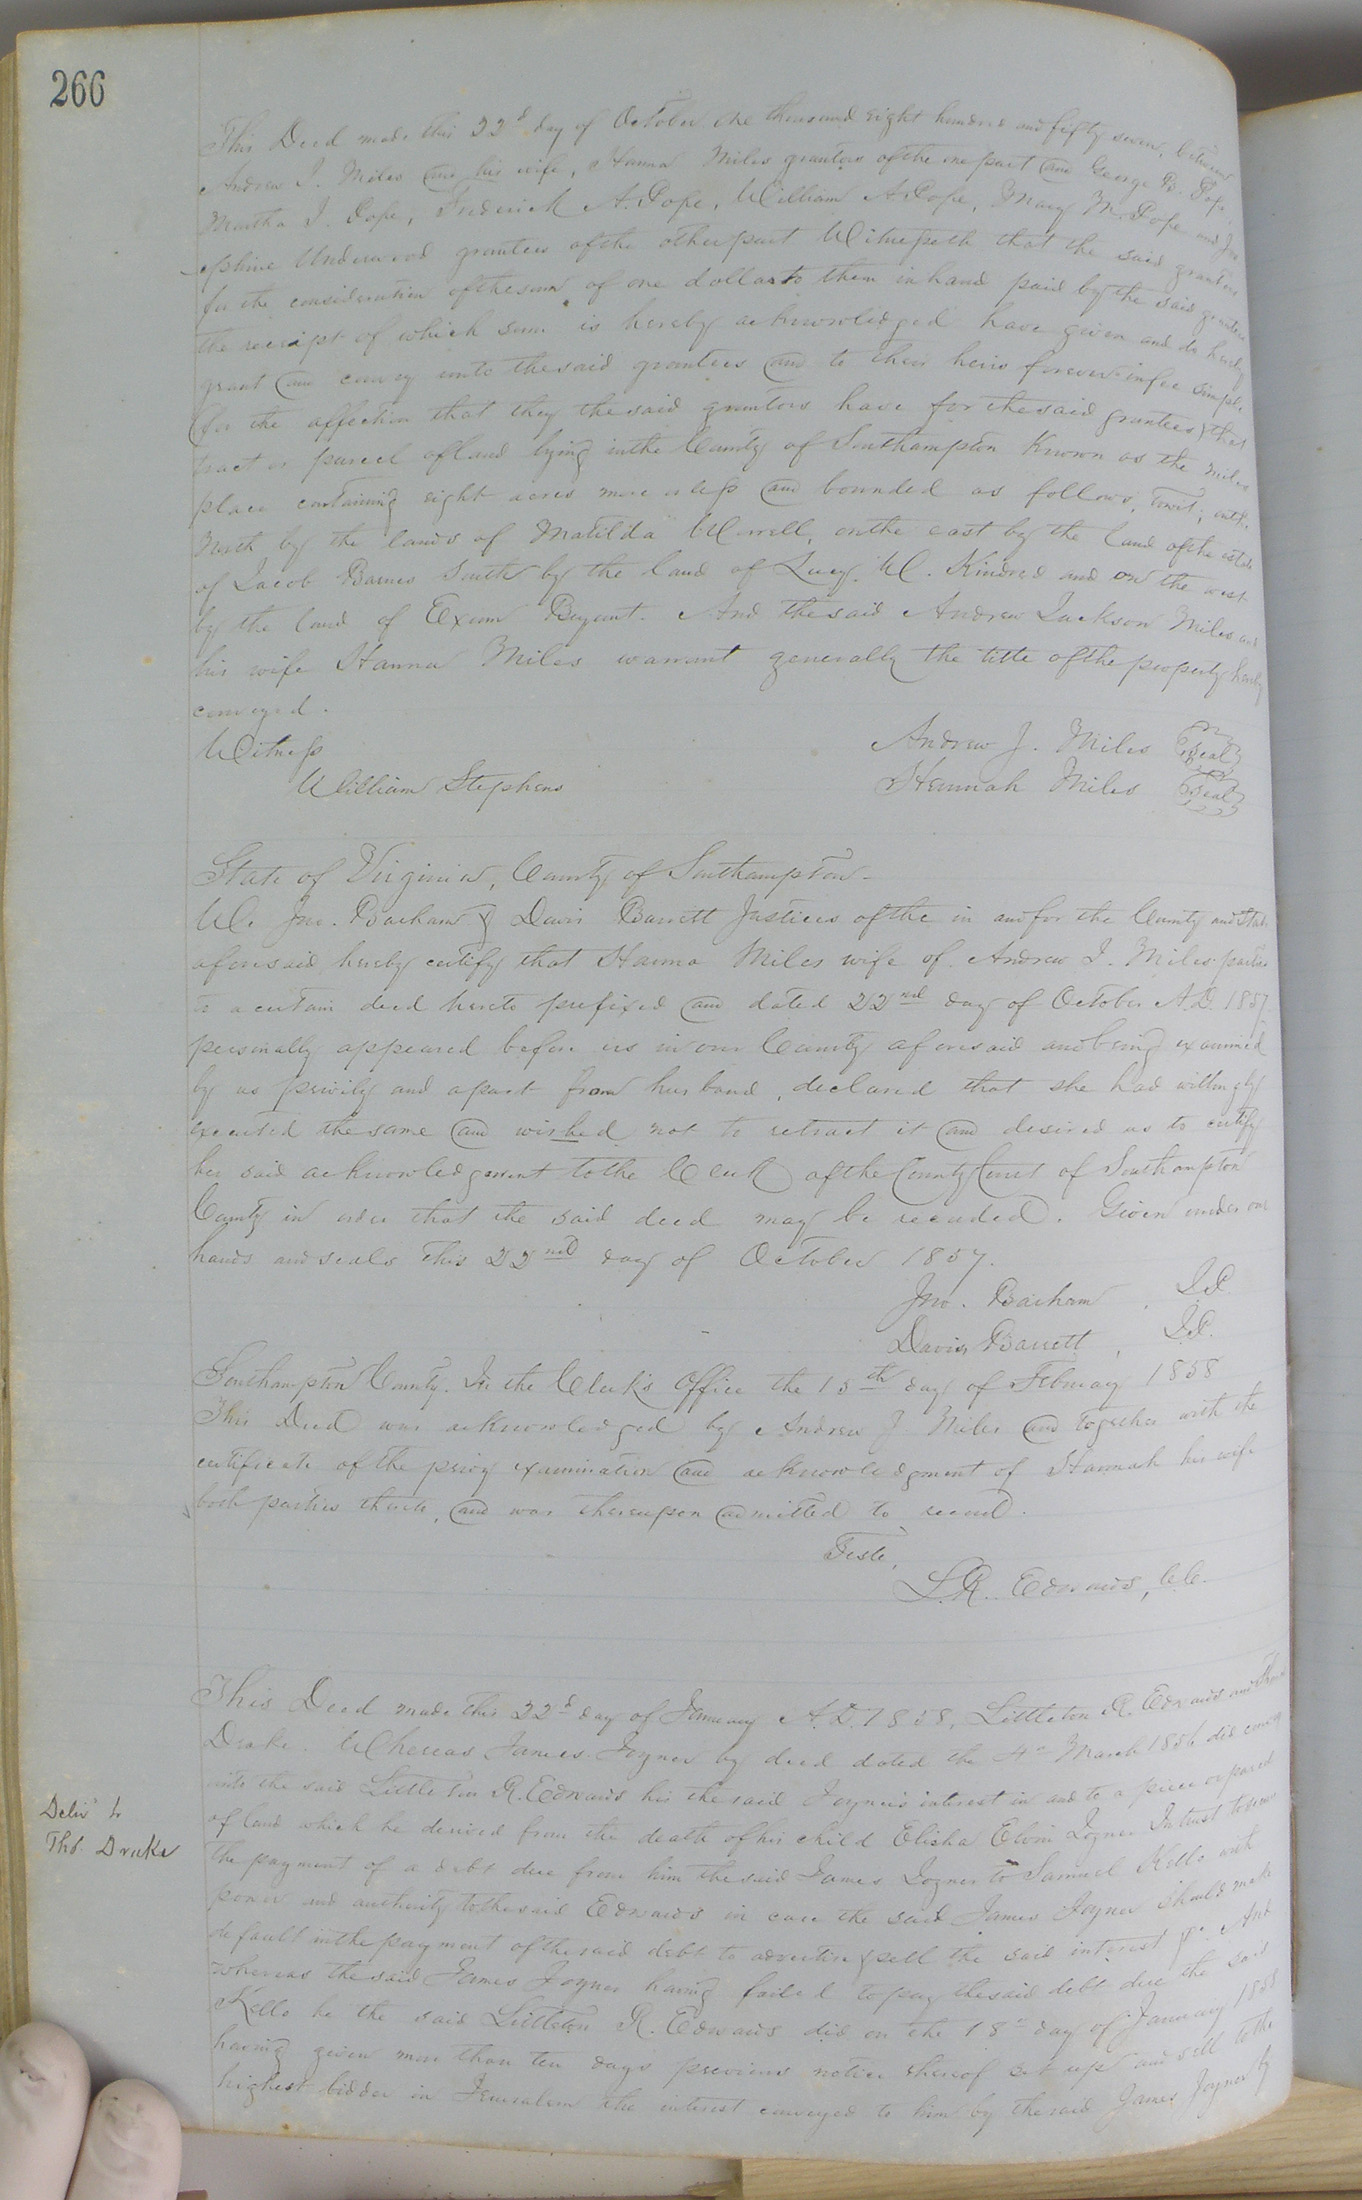 266
This Deed made this 22d day of October one thousand eight hundred and fifty seven, between
Andrew J. Miles and his wife, Hanna Miles grantors of the one part and George B. Pope,
Martha J. Pope, Frederick A. Pope, William A. Pope, Mary M. Pope and Jos
ephine Underwood grantees of the other part Witnesseth that the said grantors
for the consideration of the sum of one dollar to them in hand paid by the said grantees
the receipt of which sum is hereby acknowledged have given and do hereby
grant and convey unto the said grantees and to their heirs forever in fee simple
(for the affection that they the said grantors have for the said grantees) that
tract or parcel of land lying in the County of Southampton Known as the Miles
place containing eight acres more or less and bounded as follows, towit; on the
North by the lands of Matilda Worrell, on the east by the land of the estate
of Jacob Barnes South by the land of Lucy W. Kindred and on the west
by the land of Exum Bryant. And the said Andrew Jackson Miles and
his wife Hanna Miles warrant generally the title of the property hereby
conveyed.
Witness
Andrew J. Miles Seal
William Stephens
Hannah Miles Seal
State of Virginia, County of Southampton.
We Jno. Barham & Davis Barrett Justices of the in and for the County and State
aforesaid hereby certify that Hanna Miles wife of Andrew J. Miles parties
to a certain deed hereto prefixed and dated 22nd day of October A.D. 1857
personally appeared before us in our County aforesaid and being examined
by us privily and apart from husband, declared that she had willingly
executed the same and wished not to retract it and desired us to certify
her said acknowledgement to the Clerk of the County Court of Southampton
County in order that the said deed may be recorded. Given under our
hands and seals this 22nd day of October 1857.
Jno. Barham, J.P.
Davis Barrett, J.P.
Southampton County. In the Clerk's Office the 15th day of February 1858
This Deed was acknowledged by Andrew J Miles and together with the
certificate of the privy examination and acknowledgment of Hannah his wife
both parties thereto, and was thereupon admitted to record.
Teste,
L.R. Edwards, C.C.
This Deed made this 22d day of January A.D. 1858, Littleton R. Edwards and Thomas
Drake. Whereas James Joyner by deed dated the 4th March 1856 did convey
unto the said Littleton R. Edwards his the said Joyner's interest in and to a piece or parcel
of land which he derived from the death of his child Elisha Joyner In trust to secure
the payment of a debt due from him the said James Joyner to Samuel Kello with
power and authority to the said Edwards in case the said James Joyner should make
default in the payment of the said debt to advertise & sell the said interest &c. And
whereas the said James Joyner having failed to pay the said debt due the said
Kello he the said Littleton R. Edwards did on the 18th day of January 1858
having given more than ten days previous notice thereof set up and sell to the
highest bidder in Jerusalem the interest conveyed to him by the said James Joyner by
Deliv'd to
Tho's Drake